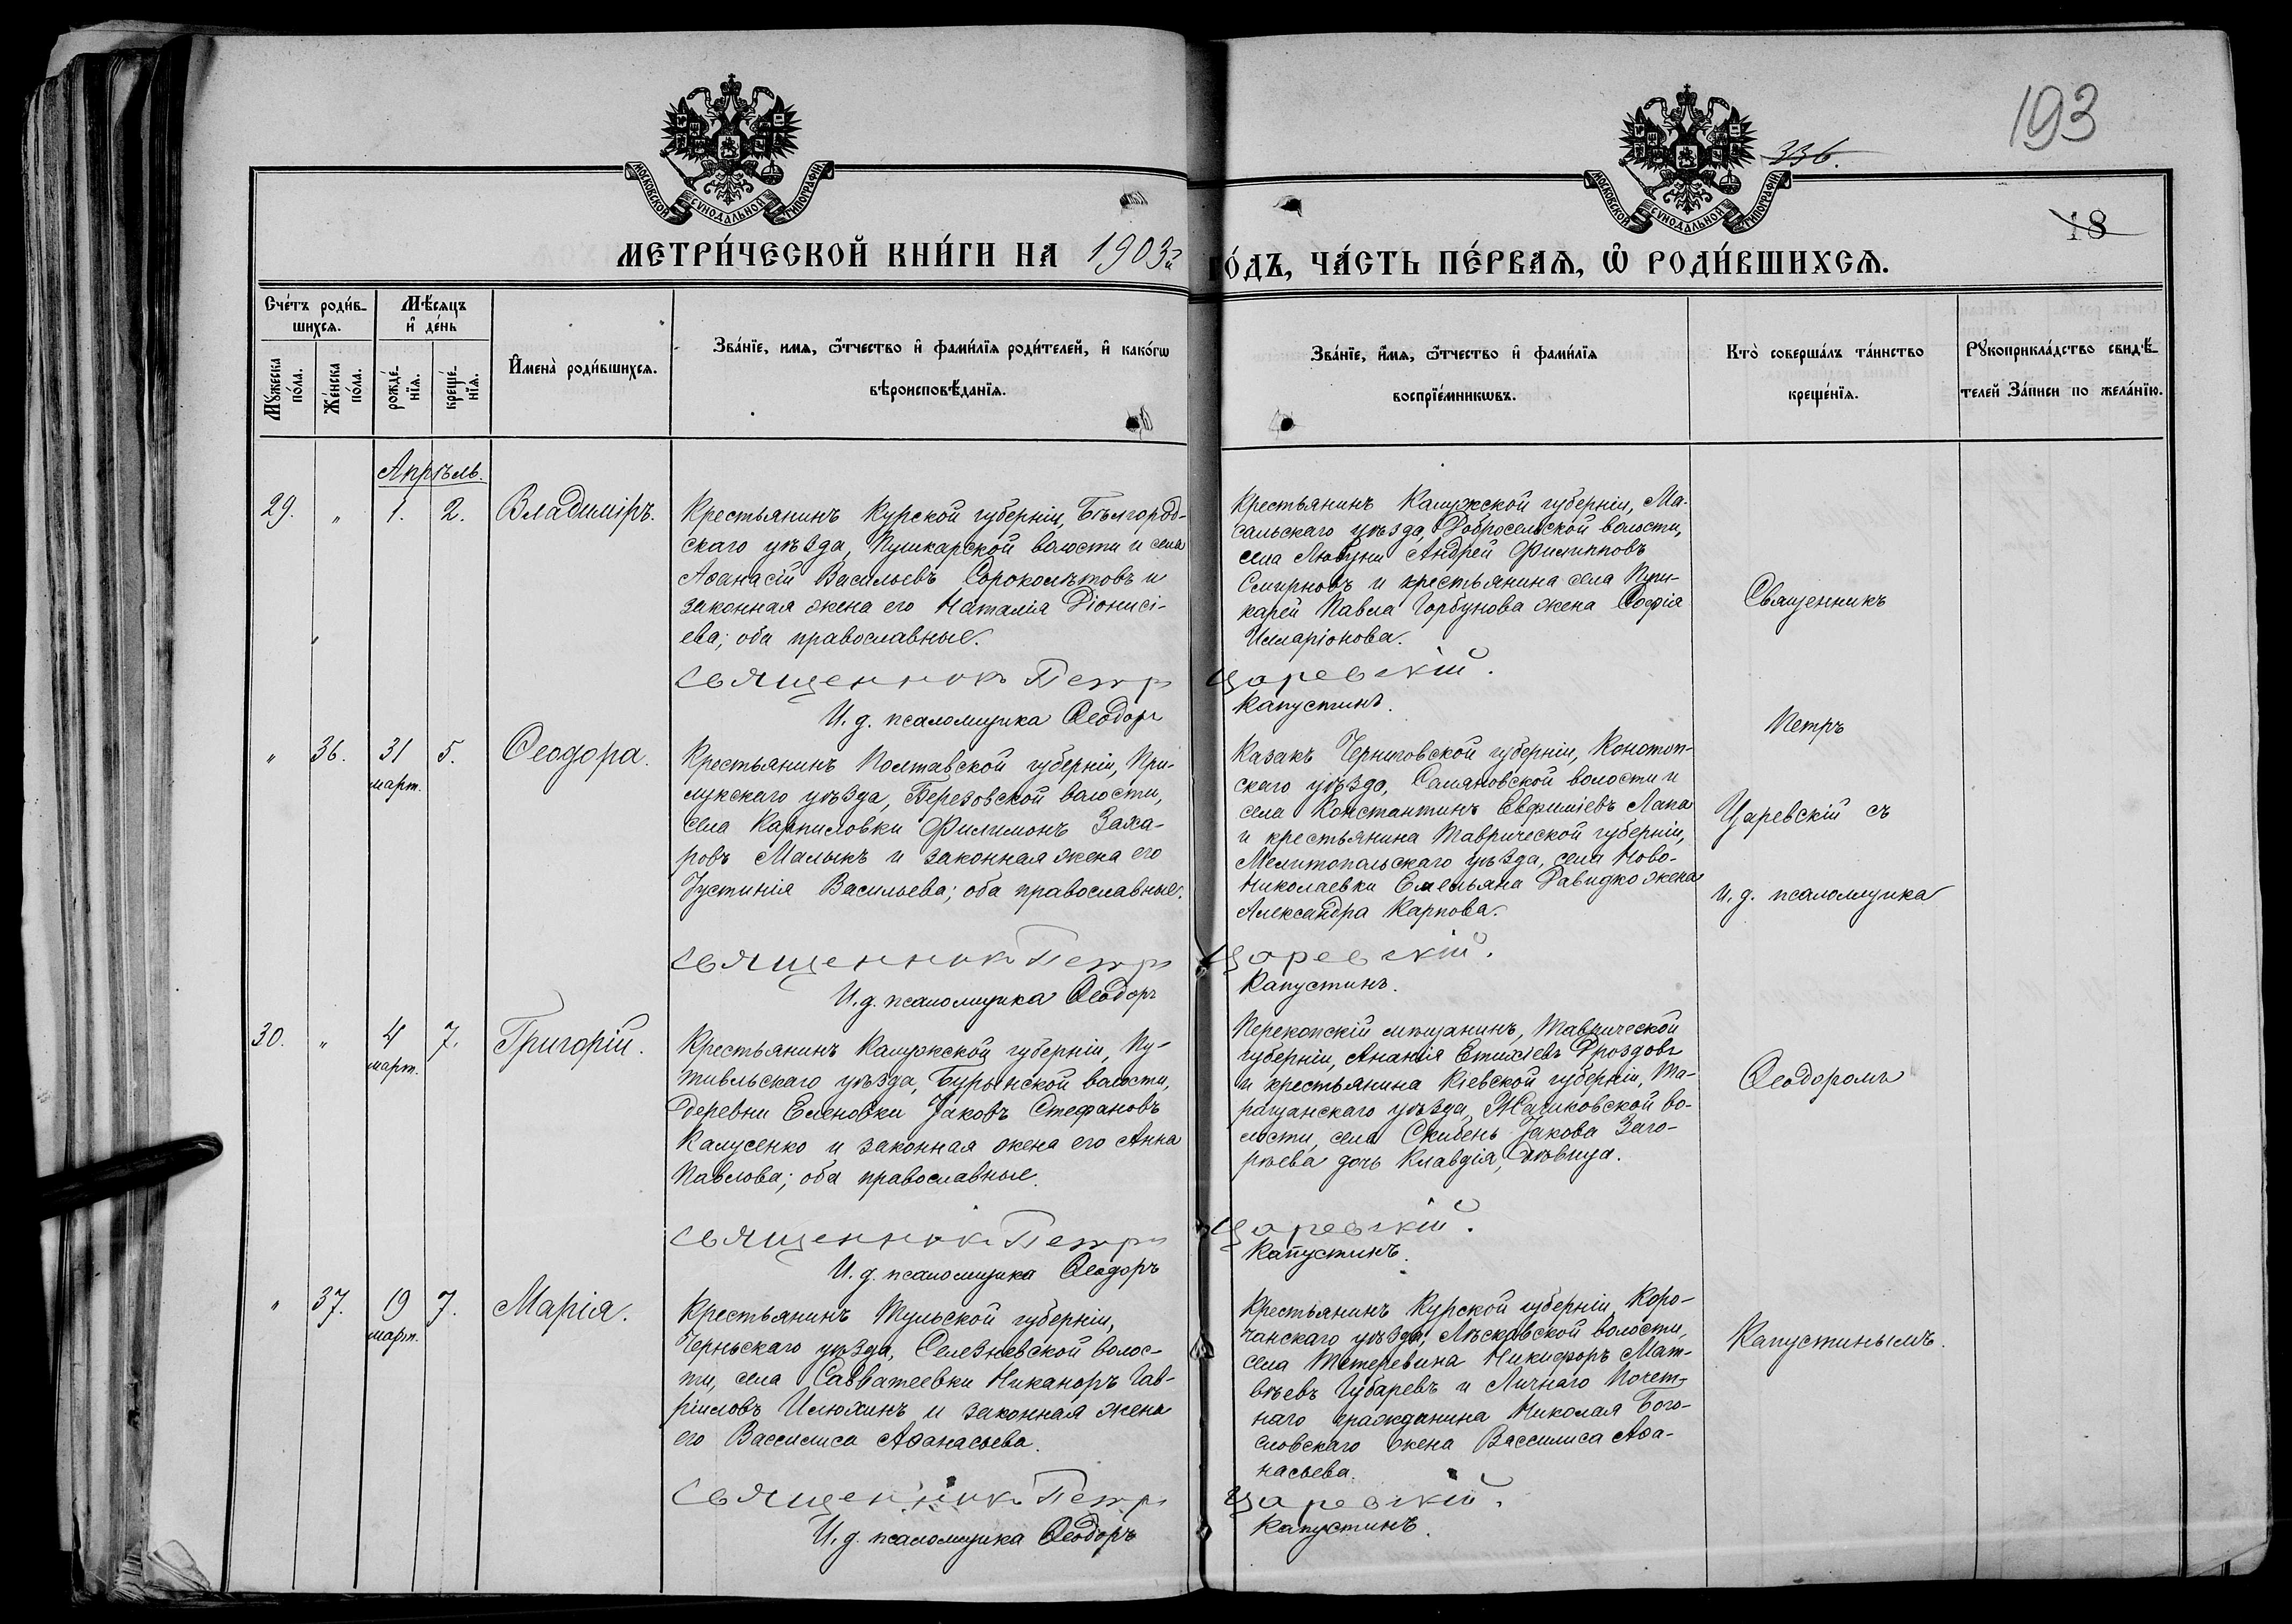 193
336.
18
МОСКОВСКОЙ СѴНОДАЛЬНОЙ ТИПОГРАФІИ
МОСКОВСКОЙ СѴНОДАЛЬНОЙ ТИПОГРАФІИ
МЕТРИ́ЧЕСКОЙ КНИ́ГИ НА 1903й
ГО́ДЪ, ЧА́СТЬ ПЕ́РВАѦ, Ѡ҆ РОДИ́ВШИХСѦ.
Сче́тъ роди́в-
шихсѧ.
Мꙋ́жеска по́ла.
Же́нска по́ла.
Мѣ́сѧцъ
и҆ де́нь
рожде́-
нїѧ.
креще́-
нїѧ.
И҆мена̀ роди́вшихсѧ.
Зва́нїе, имѧ, ѻ҆́тчество и҆ фами́лїѧ роди́телей, и҆ како́гѡ
вѣроисповѣ́данїѧ.
Зва́нїе, и҆́мѧ, ѻ҆́тчество и҆ фами́лїѧ
воспрїе́мникѡвъ.
Кто̀ соверша́лъ та́инство
креще́нїѧ.
Рꙋкоприкла́дство свидѣ́-
телей За́писи по жела́нїю.
Апрѣль.
29. " 1. 2. Владиміръ.
Крестьянинъ Курской губерніи, Бѣлгород-
скаго уѣзда, Пушкарской волости и села
Аѳанасій Васильевъ Сороколѣтовъ и
законная жена его Наталія Діонисі-
ева; оба православные.
Крестьянинъ Калужской губерніи, Ма-
сальскаго уѣзда, Добросельской волости,
села Любуни Андрей Филипповъ
Смирновъ и крестьянина села Пуш-
карей Павла Горбунова жена Софія
Илларіонова.
Священникъ Петръ Царевскій.
И. д. псаломщика Ѳеодоръ Капустинъ.
" 36. 31 март. 5. Ѳеодора.
Крестьянинъ Полтавской губерніи, При-
лукскаго уѣзда, Березовской волости,
села Карпиловки Филимонъ Заха-
ровъ Малыкъ и законная жена его
Іустинія Васильева; оба православные.
Казакъ Черниговской губерніи, Конотоп-
скаго уѣзда, волости и
села Константинъ Евфиміевъ Лапа
и крестьянина Таврической губерніи,
Мелитопольскаго уѣзда, села Ново-
Николаевки Емельяна Давидко жена
Александра Карпова.
Священникъ Петръ Царевскій.
И. д. псаломщика Ѳеодоръ Капустинъ.
30. " 4 март. 7. Григорій.
Крестьянинъ Калужской губерніи, Пу-
тивльскаго уѣзда, Бурынской волости,
деревни Еленовки Іаковъ Стефановъ
Калусенко и законная жена его Анна
Павлова; оба православные.
Перекопскій мѣщанинъ, Таврической
губерніи, Ананія Дроздовъ
и крестьянина Кіевской губерніи, Та-
ращанскаго уѣзда, Жашковской во-
лости, села Скибень Іакова Заго-
рѣева дочь Клавдія, дѣвица.
Священникъ Петръ Царевскій.
И. д. псаломщика Ѳеодоръ Капустинъ.
" 37. 19 март. 7. Марія.
Крестьянинъ Тульской губерніи,
Чернскаго уѣзда, Селезневской волос-
ти, села Савватеевки Никаноръ Гав-
ріиловъ Илюхинъ и законная жена
его Вассилиса Аѳанасьева.
Крестьянинъ Курской губерніи, Коро-
чанскаго уѣзда, Лѣсковской волости,
села Тетеревина Никифоръ Мат-
вѣевъ Губаревъ и Личнаго Почет-
наго гражданина Николая Бого-
словскаго жена Вассилиса Аѳа-
насьева.
Священникъ Петръ Царевскій.
И. д. псаломщика Ѳеодоръ Капустинъ.
Священникъ
Петръ
Царевскій съ
и. д. псаломщика
Ѳеодоромъ
Капустинымъ.